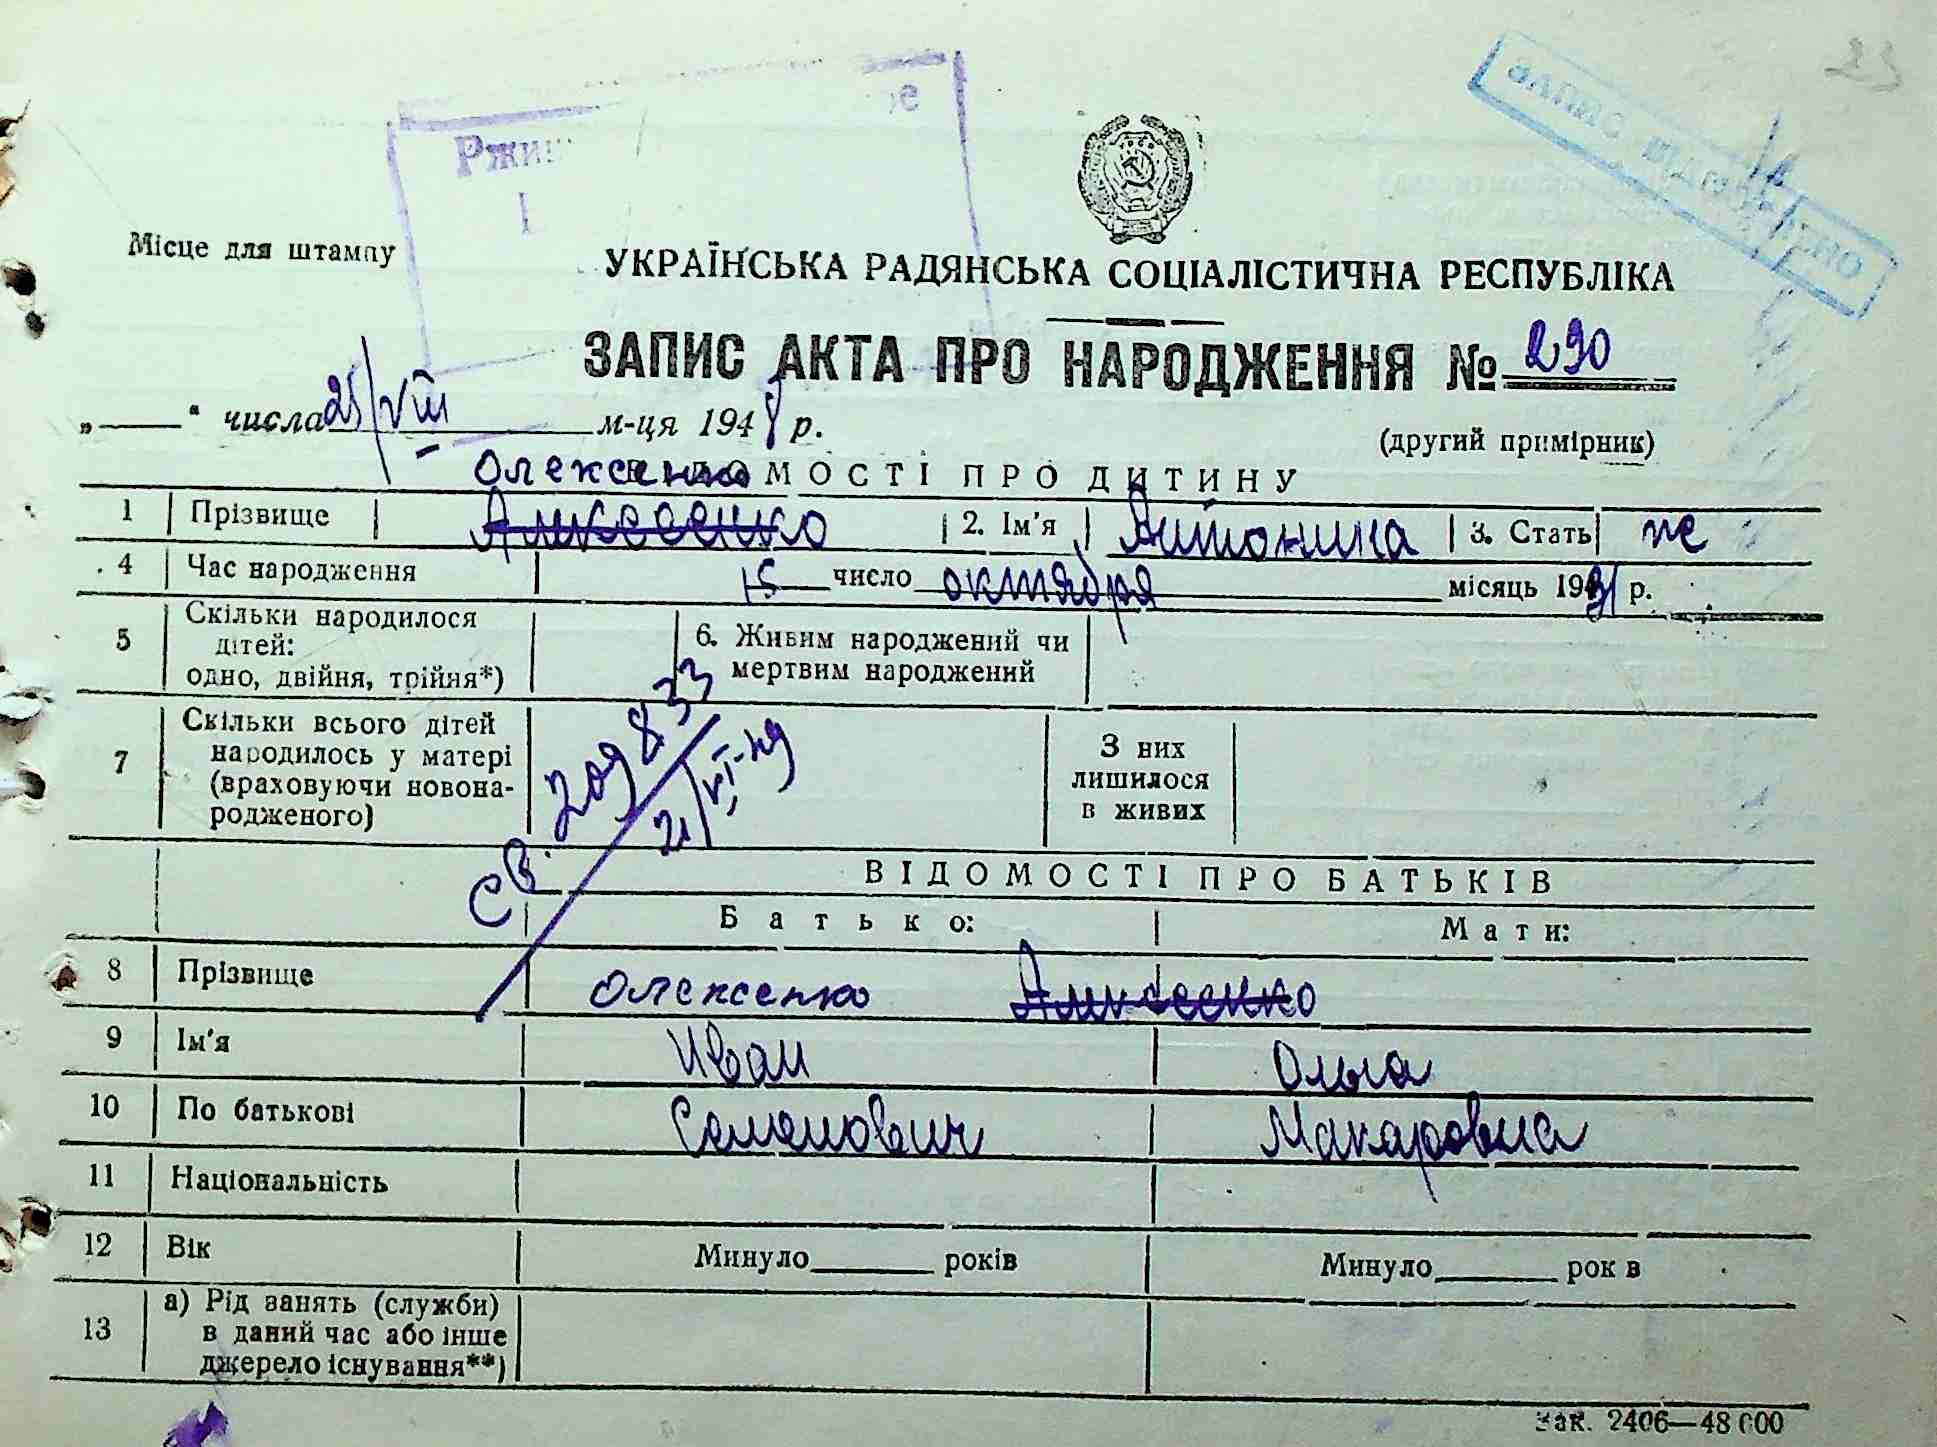 33
ЗАПИС ВІДНОВЛЕНО
Ржищ
Місце для штампу
УКРАЇНСЬКА РАДЯНСЬКА СОЦІАЛІСТИЧНА РЕСПУБЛІКА
ЗАПИС АКТА ПРО НАРОДЖЕННЯ № 290
„ “ числа 25/VIII м-ця 1948 р.
(другий примірник)
Олексенко ВІДОМОСТІ ПРО ДИТИНУ
1 Прізвище Алексеенко 2. Ім'я Антонина 3. Стать же
4 Час народження 15 число октября місяць 1931 р.
5 Скільки народилося
дітей:
одно, двійня, трійня*)
6. Живим народжений чи
мертвим народжений
7 Скільки всього дітей
народилось у матері
(враховуючи новона-
родженого)
З них
лишилося
в живих
св. 209833
21/VI-49
ВІДОМОСТІ ПРО БАТЬКІВ
Батько: Мати:
8 Прізвище Олексенко Алексеенко
9 Ім'я Иван Ольга
10 По батькові Семенович Макаровна
11 Національність
12 Вік Минуло років Минуло рок в
13 а) Рід занять (служби)
в даний час або інше
джерело існування**)
Зак. 2406—48 000